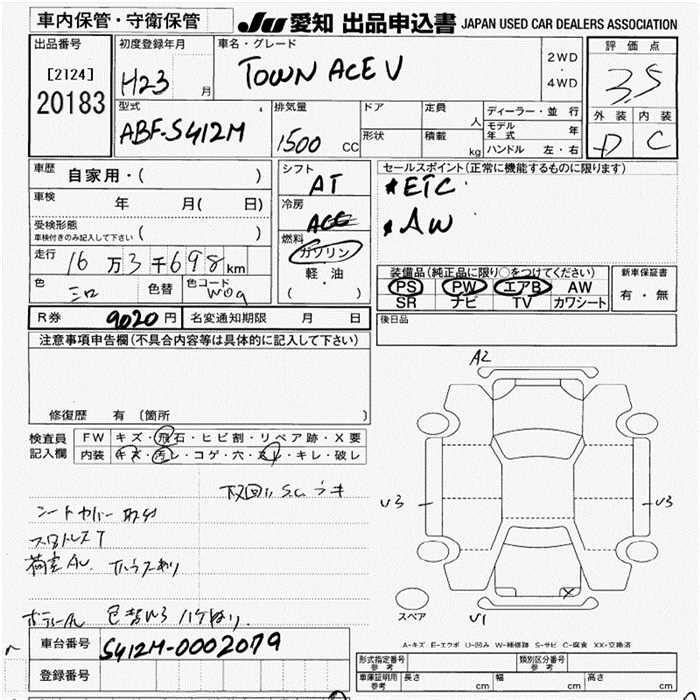 車内保管・守衛保管
JU 愛知 出品申込書 JAPAN USED CAR DEALERS ASSOCIATION
出品番号
[2124]
20183
初度登録年月
H23 月
車名・グレード
TOWN ACE V
2WD
・
4WD
評価点
3.5
外装 内装
D C
型式
ABF-S412M
排気量
1500 CC
ドア
形状
定員
人
積載
kg
ディーラー・並行
モデル年式 年
ハンドル 左・右
車歴 自家用・( )
車検 年 月( 日)
受検形態
車検付きのみ記入して下さい ( )
走行 16万3千698km
色 シロ 色替 色コード W09
シフト
AT
冷房
燃料
ガソリン
軽・油
( )
セールスポイント(正常に機能するものに限ります)
ETC
AW
装備品(純正品に限り○をつけてください)
PS PW エアB AW
SR ナビ TV カワシート
新車保証書
有・無
R券 9020円 名変通知期限 月 日
後日品
注意事項申告欄(不具合内容等は具体的に記入して下さい)
修復歴 有(箇所 )
検査員記入欄
FW キズ・飛石・ヒビ割・リペア跡・X要
内装 キズ・汚レ・コゲ・穴・スレ・キレ・破レ
下回り S.C ラキ
シートカバー
荷室
A2
U3
U3
X
スペア
U1
車台番号 S412M-0002079
登録番号
A-キズ E-エクボ U-凹み W-補修跡 S-サビ C-腐食 XX-交換済
形式指定番号 参考
類別区分番号 参考
車庫証明用 参考 長さ cm 幅 cm 高さ cm